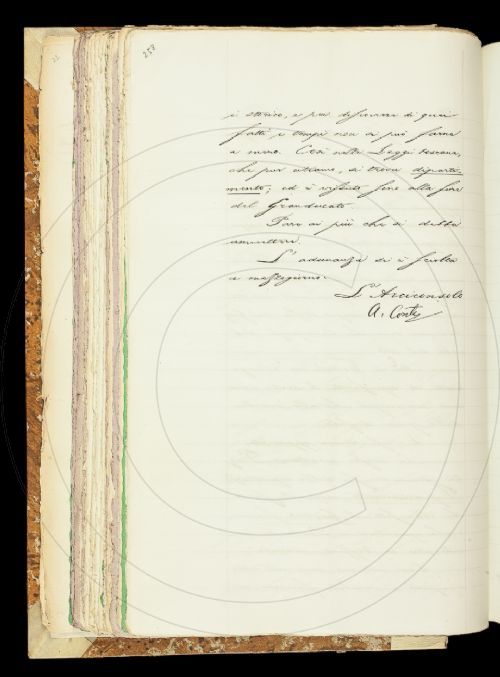 258
è storico, e per discorrere di quei
fatti e tempi non si può farne
a meno. Così nelle Leggi toscane,
che pur citiamo, si trova diparti-
mento; ed è vissuto fino alla fine
del Granducato.
Pare ai più che si debba
ammettere.
L'adunanza si è sciolta
a mezzogiorno.
L'Arciconsolo
A. Conti